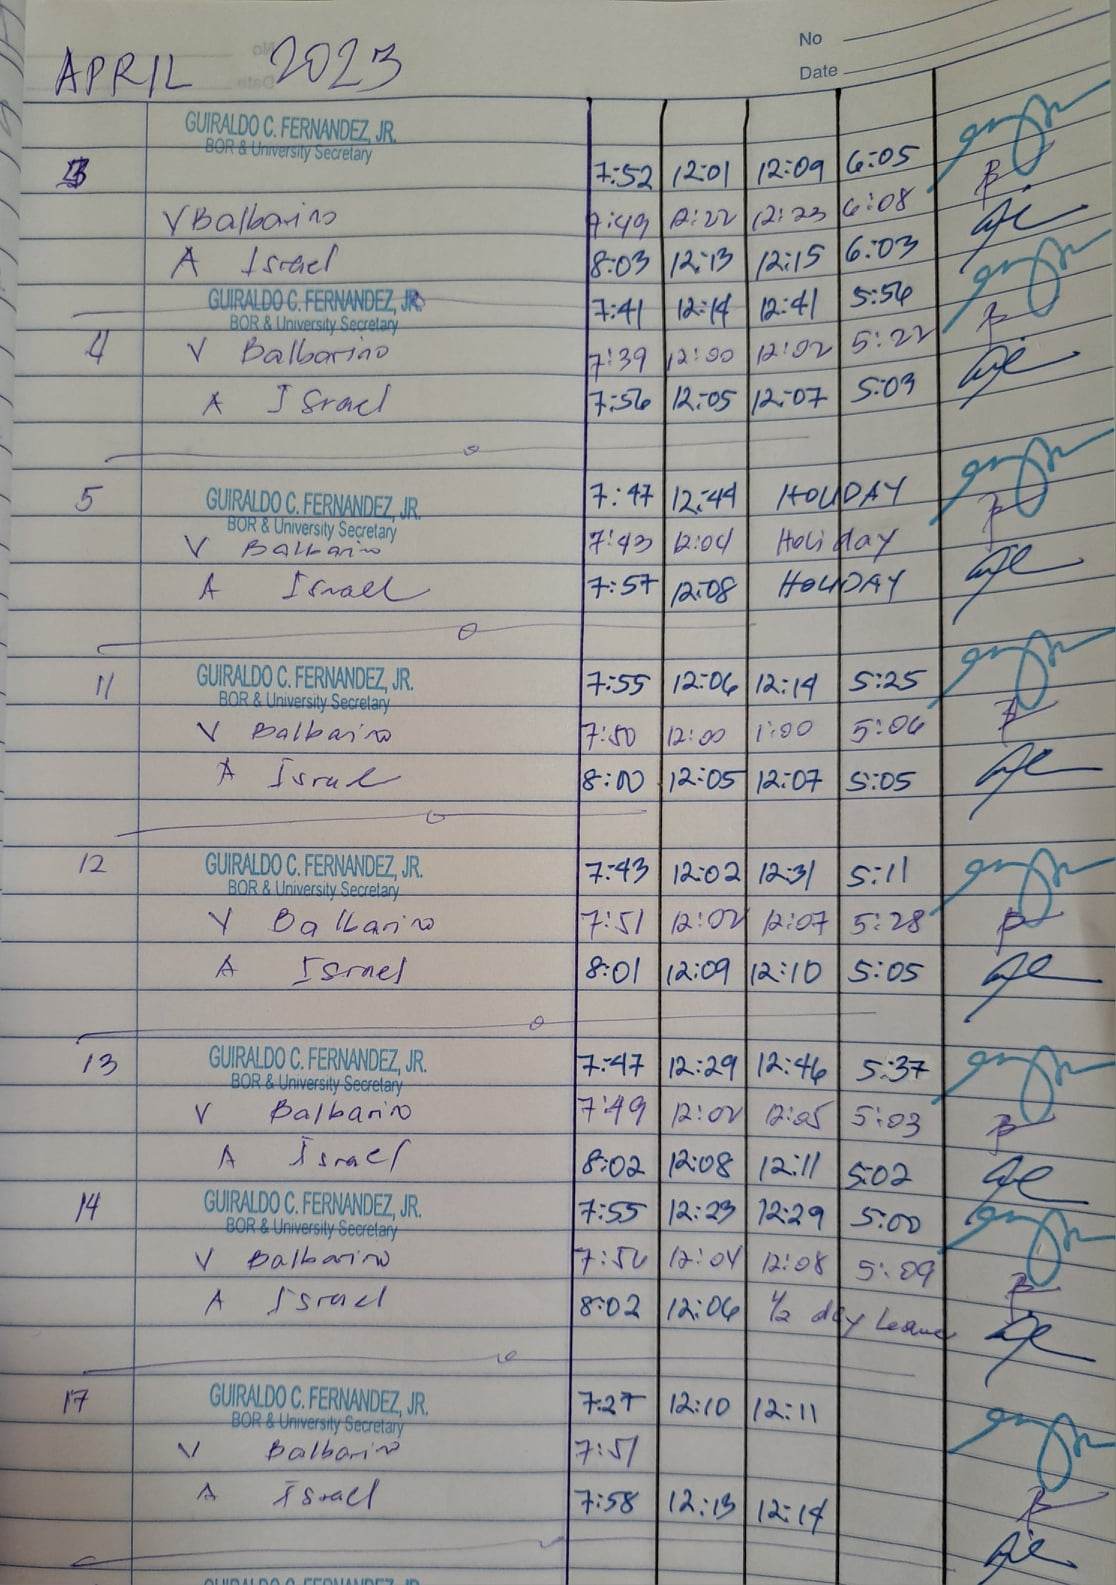 No
Date
APRIL 2023
GUIRALDO C. FERNANDEZ, JR.
BOR & University Secretary
3 7:52 12:01 12:09 6:05
V Balbarino 7:49 12:22 12:23 6:08
A Israel 8:03 12:13 12:15 6:03
GUIRALDO C. FERNANDEZ, JR. 7:41 12:14 12:41 5:56
BOR & University Secretary
4 V Balbarino 7:39 12:00 12:02 5:22
A Israel 7:56 12:05 12:07 5:03
5 GUIRALDO C. FERNANDEZ, JR. 7:47 12:44 HOLIDAY
BOR & University Secretary
V Balbarino 7:43 12:04 Holiday
A Israel 7:57 12:08 HOLIDAY
11 GUIRALDO C. FERNANDEZ, JR. 7:55 12:06 12:14 5:25
BOR & University Secretary
V Balbarino 7:50 12:00 1:00 5:06
A Israel 8:00 12:05 12:07 5:05
12 GUIRALDO C. FERNANDEZ, JR. 7:43 12:02 12:31 5:11
BOR & University Secretary
V Balbarino 7:51 12:02 12:07 5:28
A Israel 8:01 12:09 12:10 5:05
13 GUIRALDO C. FERNANDEZ, JR. 7:47 12:29 12:46 5:37
BOR & University Secretary
V Balbarino 7:49 12:02 12:05 5:03
A Israel 8:02 12:08 12:11 5:02
14 GUIRALDO C. FERNANDEZ, JR. 7:55 12:23 12:29 5:00
BOR & University Secretary
V Balbarino 7:56 12:04 12:08 5:09
A Israel 8:02 12:06 1/2 day Leave
17 GUIRALDO C. FERNANDEZ, JR. 7:27 12:10 12:11
BOR & University Secretary
V Balbarino 7:51
A Israel 7:58 12:13 12:14
GUIRALDO C. FERNANDEZ, JR.